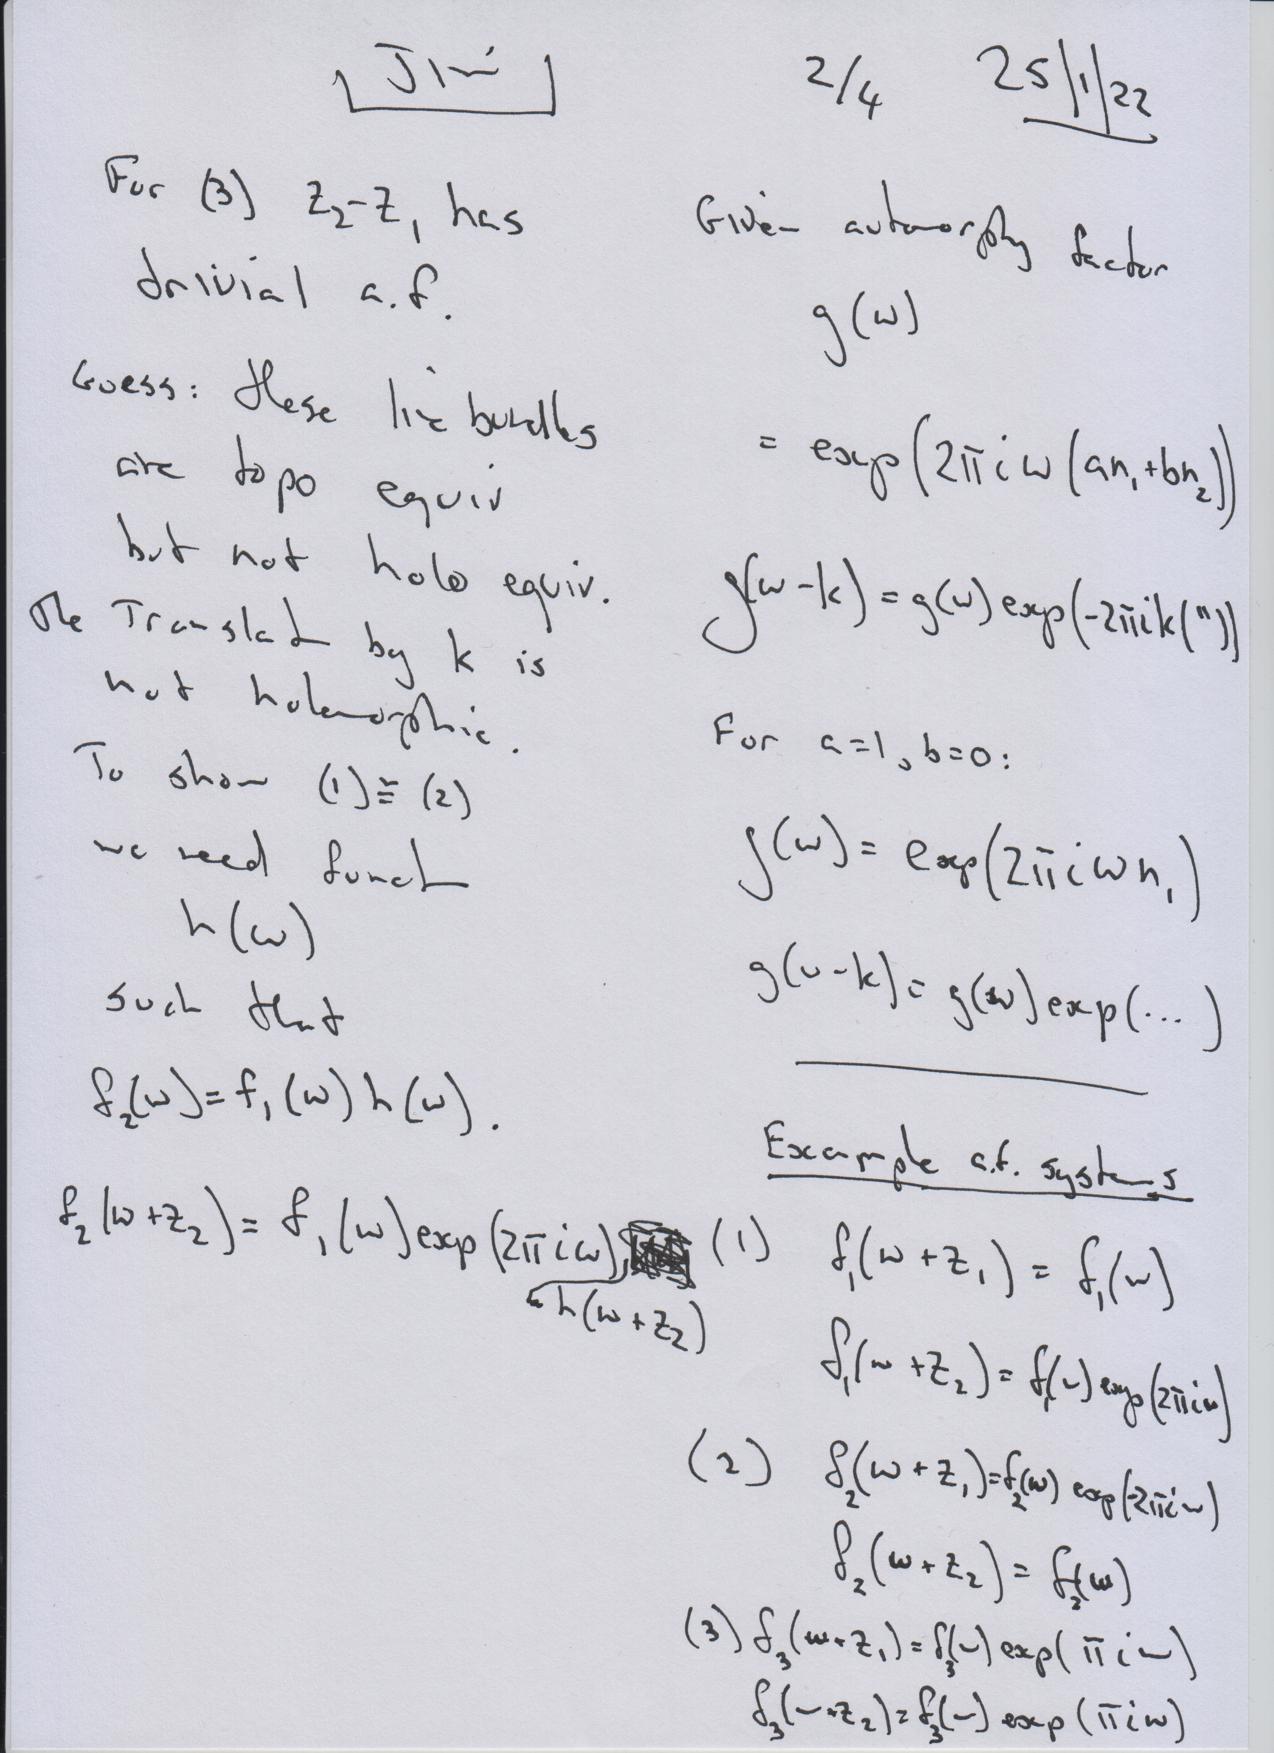 JIM 2/4 25/1/22
For (3) z₂-z₁ has
trivial a.f.
Guess: these line bundles
are topo equiv
but not holo equiv.
The Translat by k is
not holomorphic.
To show (1)≅(2)
we need funct
h(w)
such that
f₂(w)=f₁(w)h(w).
f₂(w+z₂)= f₁(w)exp(2πiw)
h(w+z₂)
Given automorphy factor
g(w)
= exp(2πiw(an₁+bn₂))
g(w-k)=g(w)exp(-2πik("))
For a=1, b=0:
g(w)= exp(2πiwn₁)
g(w-k)= g(w)exp(...)
Example a.f. systems
(1) f₁(w+z₁)= f₁(w)
f₁(w+z₂)= f₁(w)exp(2πiw)
(2) f₂(w+z₁)=f₂(w) exp(-2πiw)
f₂(w+z₂)= f₂(w)
(3) f₃(w+z₁)=f₃(w) exp(πiw)
f₃(w+z₂)=f₃(w) exp(πiw)